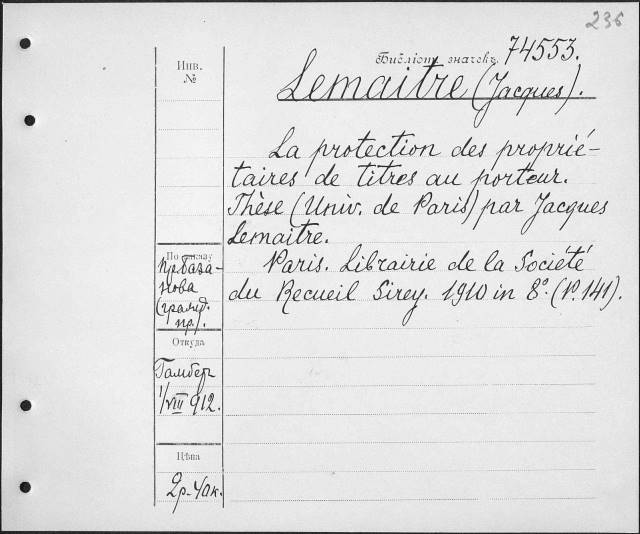 236
Библіот. значекъ. 74553.
Инв.
№
Lemaitre (Jacques).
La protection des proprié-
taires de titres au porteur.
Thèse (Univ. de Paris) par Jacques
Lemaitre.
Paris. Librairie de la Société
du Recueil Sirey. 1910 in 8°. (P. 141).
По заказу
пр. База-
нова
(гражд.
пр.).
Откуда
Гамбер
1/VIII 912.
Цѣна
2р. 40к.